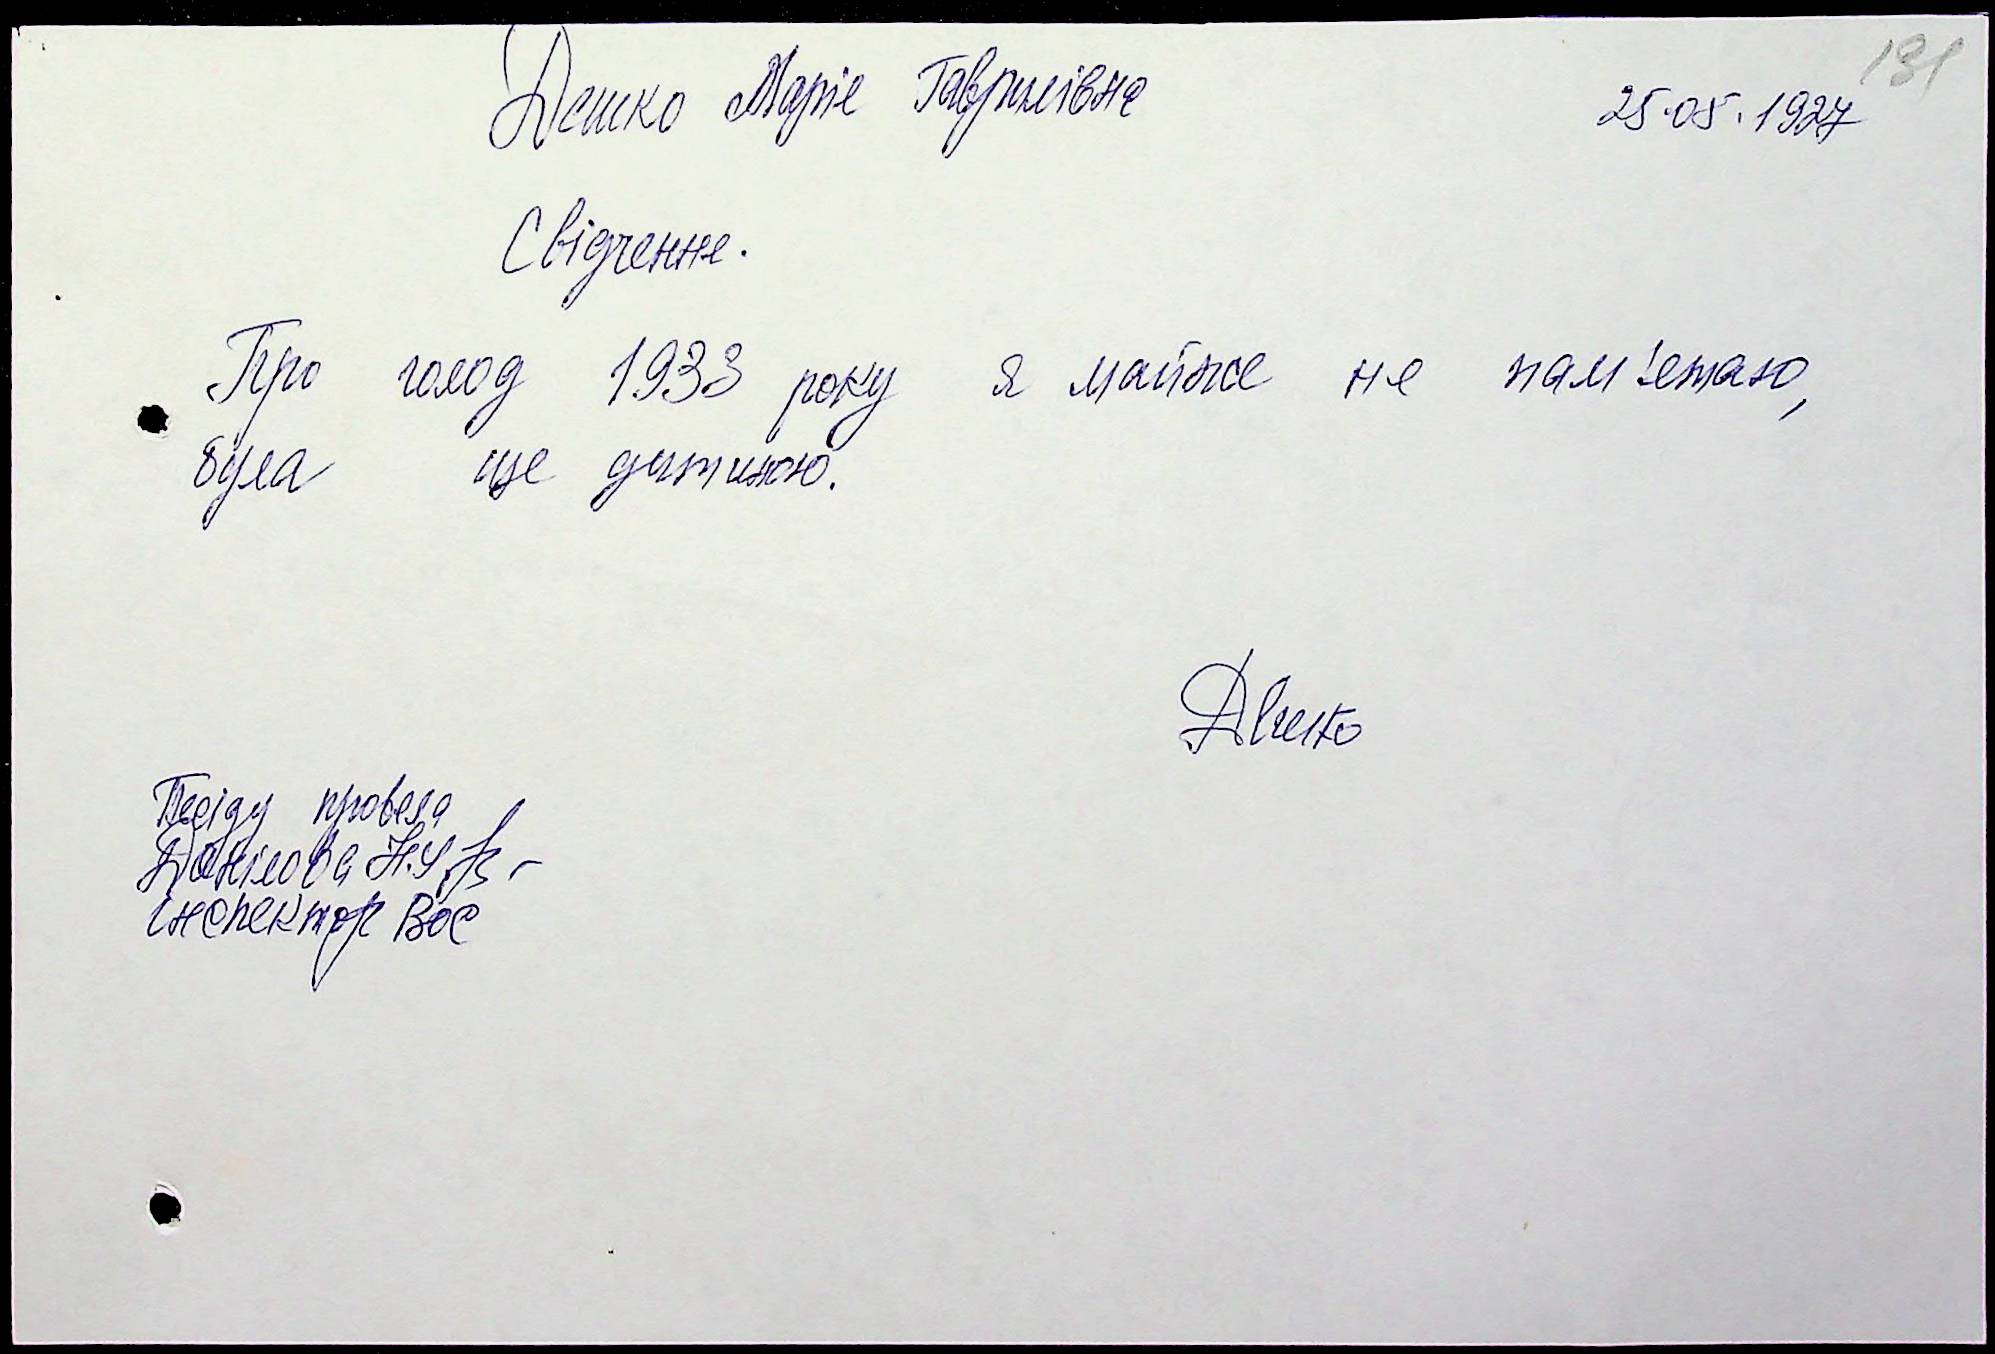 191
Дешко Марія Гаврилівна 25.05.1927
Свідчення.
Про голод 1933 року я майже не пам'ятаю,
була ще дитиною.
Бесіду провела
Данілова Н.У.
інспектор ВОС